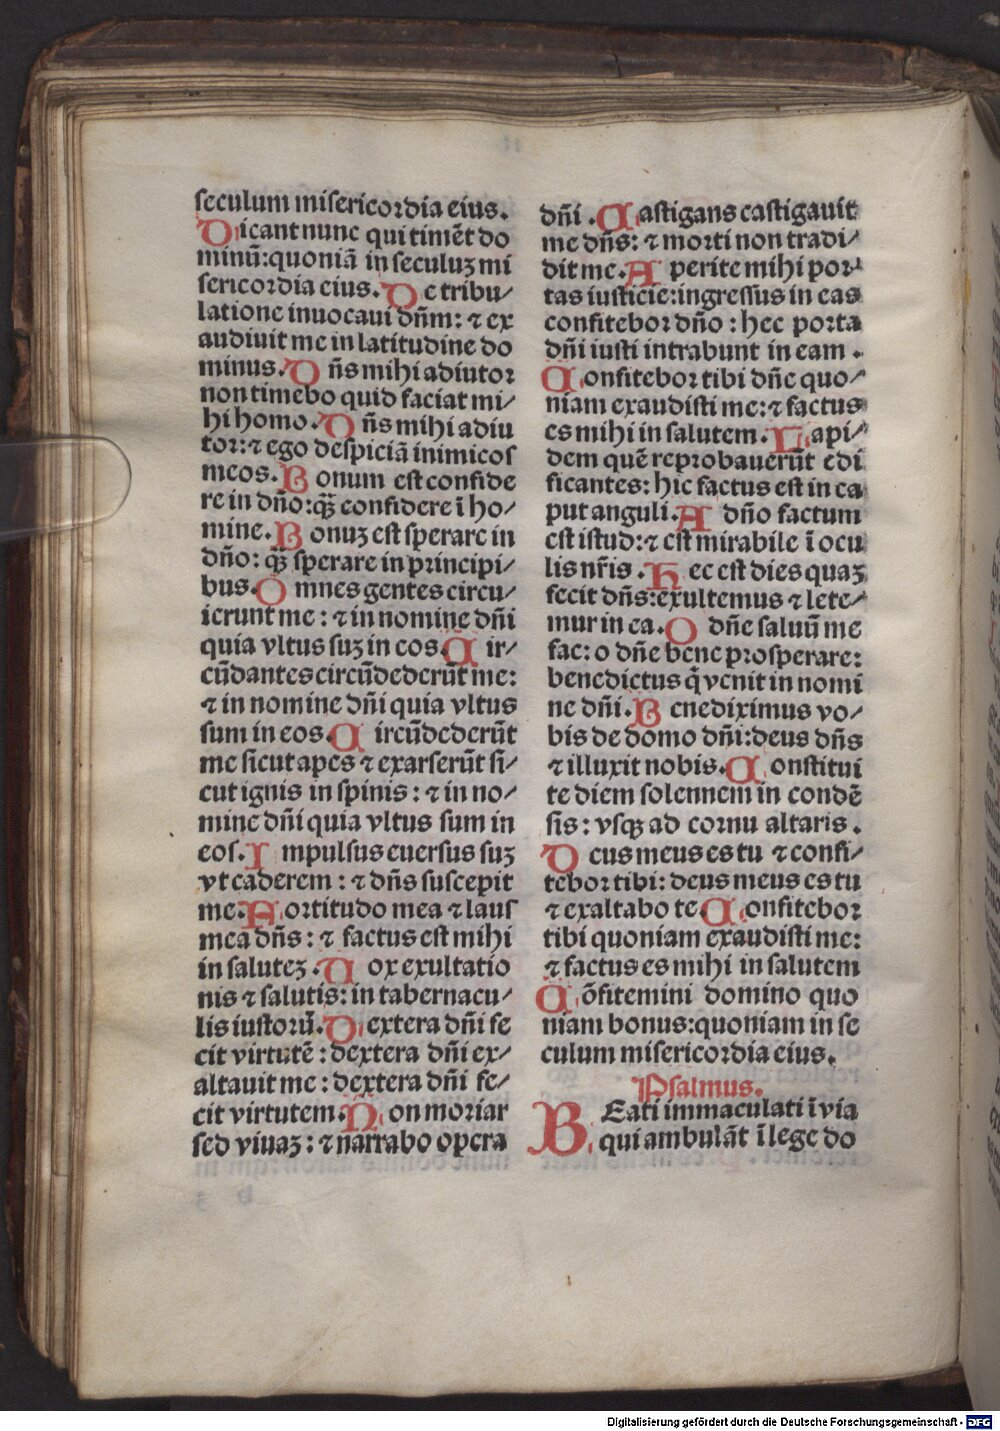 seculum misericordia eius.
Dicant nunc qui timẽt do
minũ: quoniã in seculuꝫ mi
sericordia eius. De tribu/
latione inuocaui dñm: ⁊ ex
audiuit me in latitudine do
minus. Dñs mihi adiutor
non timebo quid faciat mi/
hi homo. Dñs mihi adiu
tor: ⁊ ego despiciã inimicos
meos. Bonum est confide
re in dño: q̃ꝫ confidere ĩ ho/
mine. Bonuꝫ est sperare in
dño: q̃ꝫ sperare in principi/
bus. Omnes gentes circu/
ierunt me: ⁊ in nomine dñi
quia vltus suꝫ in eos. Cir/
cũdantes circũdederũt me:
⁊ in nomine dñi quia vltus
sum in eos. Circũdederũt
me sicut apes ⁊ exarserũt si/
cut ignis in spinis: ⁊ in no/
mine dñi quia vltus sum in
eos. Impulsus euersus suꝫ
vt caderem: ⁊ dñs suscepit
me. Fortitudo mea ⁊ laus
mea dñs: ⁊ factus est mihi
in saluteꝫ. Vox exultatio
nis ⁊ salutis: in tabernacu/
lis iustorũ. Dextera dñi fe
cit virtutẽ: dextera dñi ex/
altauit me: dextera dñi fe/
cit virtutem. Non moriar
sed viuaꝫ: ⁊ narrabo opera
dñi. Castigans castigauit
me dñs: ⁊ morti non tradi/
dit me. Aperite mihi por/
tas iusticie: ingressus in eas
confitebor dño: hec porta
dñi iusti intrabunt in eam.
Confitebor tibi dñe quo/
niam exaudisti me: ⁊ factus
es mihi in salutem. Lapi/
dem quẽ reprobauerũt edi
ficantes: hic factus est in ca
put anguli. A dño factum
est istud: ⁊ est mirabile ĩ ocu
lis nr̃is. Hec est dies quaꝫ
fecit dñs: exultemus ⁊ lete/
mur in ea. O dñe saluũ me
fac: o dñe bene prosperare:
benedictus q̃ venit in nomi
ne dñi. Benediximus vo/
bis de domo dñi: deus dñs
⁊ illuxit nobis. Constitui
te diem solennem in condẽ
sis: vsqꝫ ad cornu altaris.
Deus meus es tu ⁊ confi/
tebor tibi: deus meus es tu
⁊ exaltabo te. Confitebor
tibi quoniam exaudisti me:
⁊ factus es mihi in salutem
Cõfitemini domino quo
niam bonus: quoniam in se
culum misericordia eius.
Psalmus.
BEati immaculati ĩ via
qui ambulãt ĩ lege do
Digitalisierung gefördert durch die Deutsche Forschungsgemeinschaft - DFG